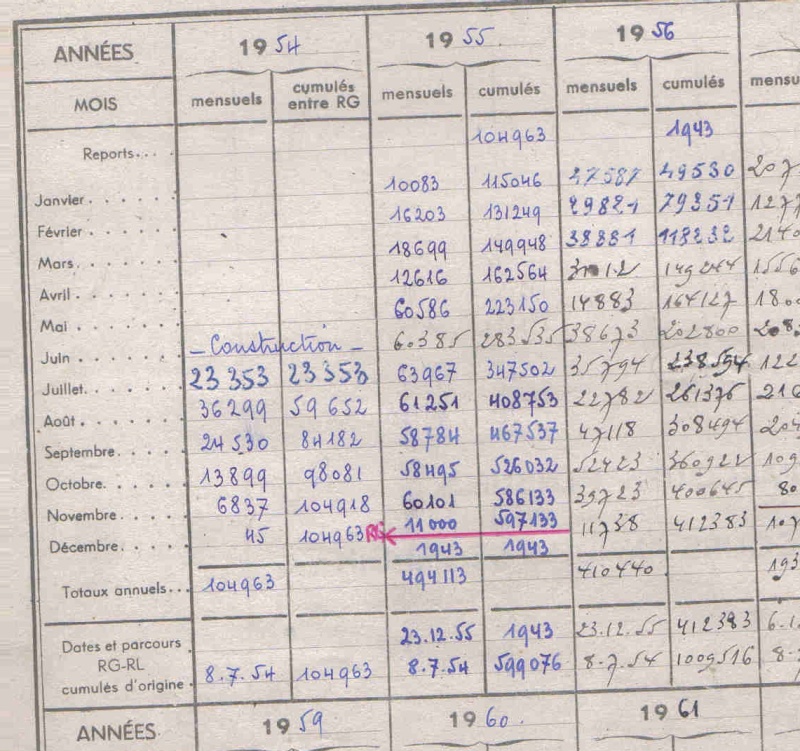 ANNÉES 1954 1955 1956
MOIS mensuels cumulés entre RG mensuels cumulés mensuels cumulés mensu
Reports... 104963 1943
Janvier 10083 115046 27587 49530 207
Février 16203 131249 29821 79351 1277
Mars 18699 149948 38881 118232 2140
Avril 12616 162564 149244 1556
Mai 60586 223150 14883 164127 180
Juin - Construction - 60385 283535 38673 202800 208
Juillet 23 353 23353 63967 347502 35794 238594 122
Août 36299 59 652 61251 408753 22782 261376 216
Septembre 24530 84182 58784 467537 47118 308494 204
Octobre 13899 98081 58495 526032 52423 360922 109
Novembre 6837 104918 60101 586133 39723 400645 80
Décembre 45 104963 RG 11000 597133 11738 412383 107
1943 1943
Totaux annuels... 104963 494113 410440 193
Dates et parcours 23.12.55 1943 23.12.55 412383 6.1
RG-RL
cumulés d'origine 8.7.54 104963 8.7.54 599076 8-7.54 1009516 8-
ANNÉES 1959 1960. 1961